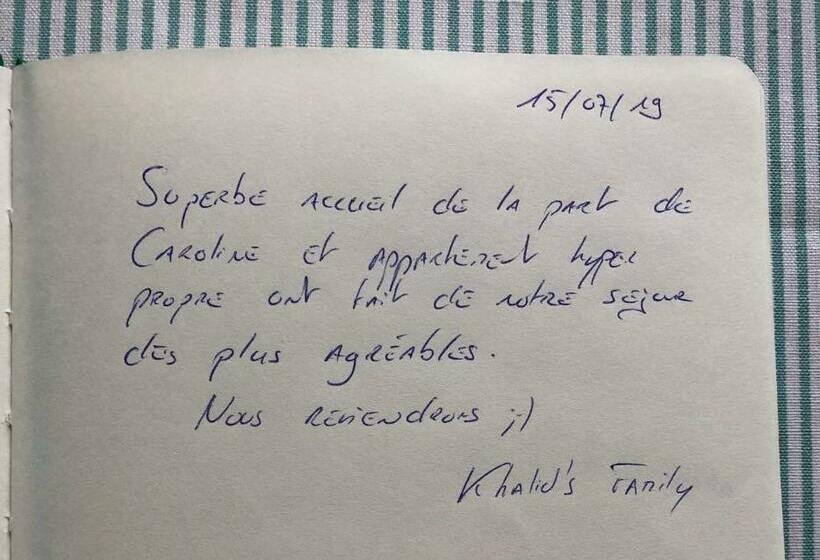 15/07/19
Superbe accueil de la part de
Caroline et appartement hyper
propre ont fait de notre séjour
des plus agréables.
Nous reviendrons ;-)
Khalid's Family